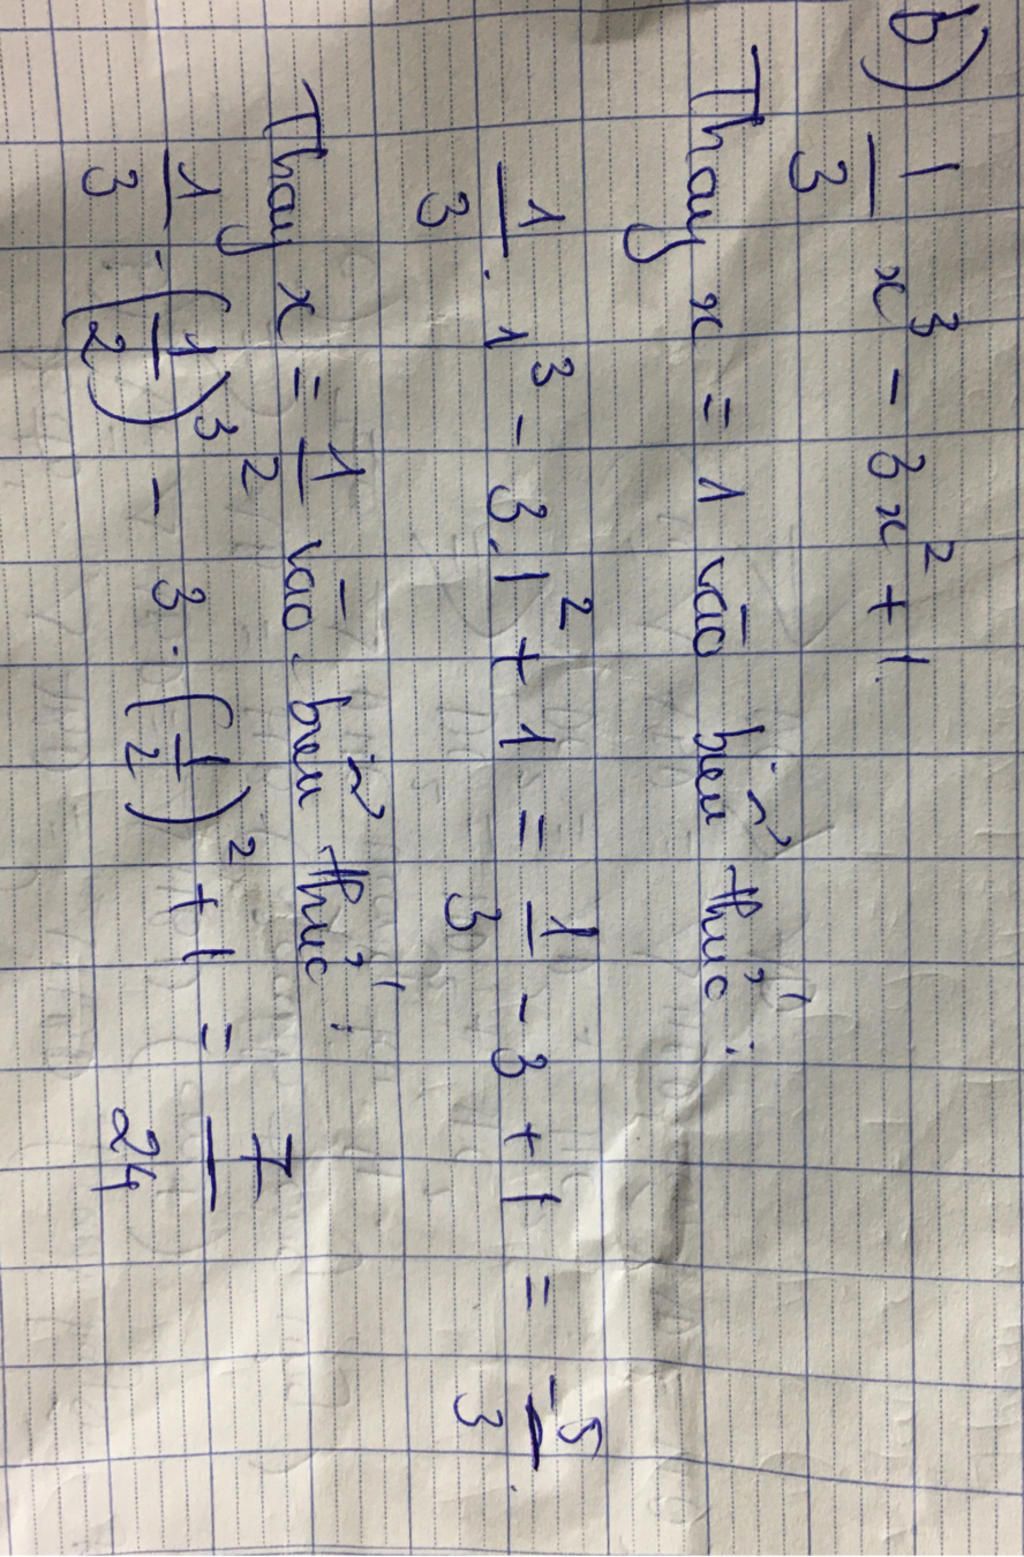 b) 1/3 x³ - 3x² + 1.
Thay x = 1 vào biểu thức :
1/3 . 1³ - 3.1² + 1 = 1/3 - 3 + 1 = -5/3.
Thay x = 1/2 vào biểu thức :
1/3 . (1/2)³ - 3 . (1/2)² + 1 = 7/24